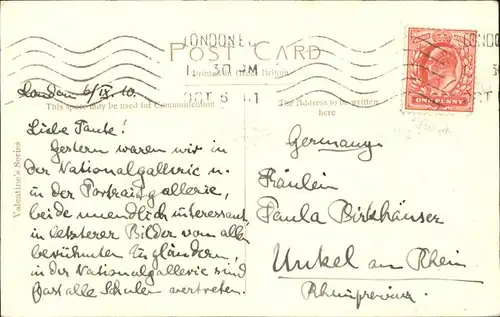 LONDON E.C
LONDO
POST CARD
.30 PM
Printed in Great Britain
London 6/IX. 10.
OCT 6
This space may be used for Communication
The Address to be written
here
ONE PENNY
Valentine's Series
Liebe Tante!
Gestern waren wir in
der Nationalgallerie u.
in der Portraitgallerie,
beide unendlich interessant
in letzterer Bilder von allen
berühmten Engländern,
in der Nationalgallerie sind
fast alle Schulen vertreten.
Germany
Fräulein
Paula Birkhäuser
Unkel am Rhein
Rheinprovinz.